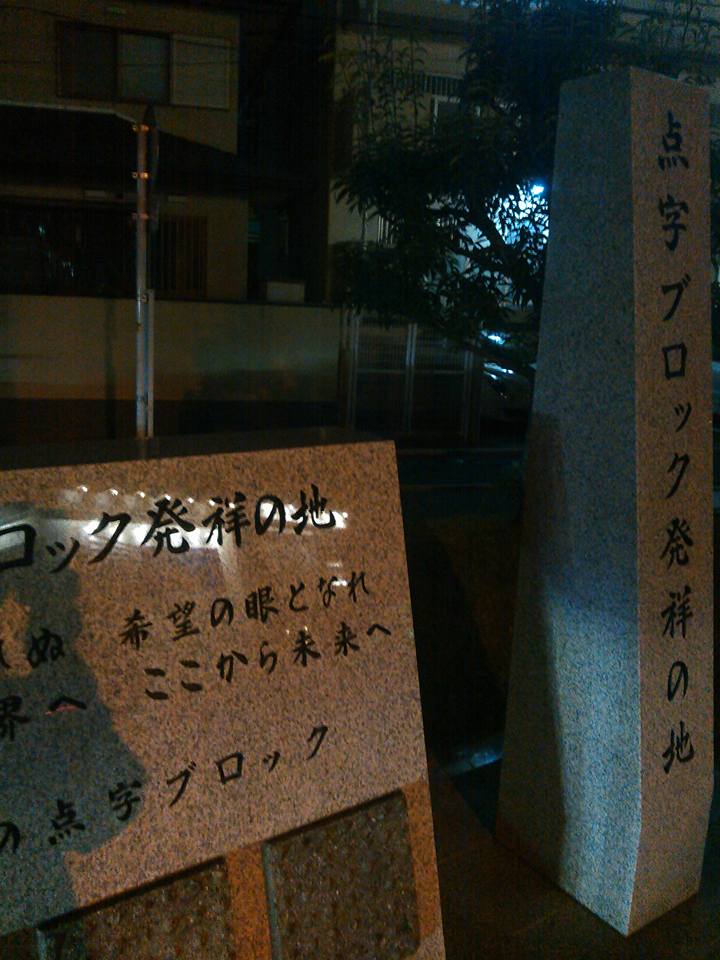 点字ブロック発祥の地
ロック発祥の地
ぬ 希望の眼となれ
界へ ここから未来へ
の点字ブロック